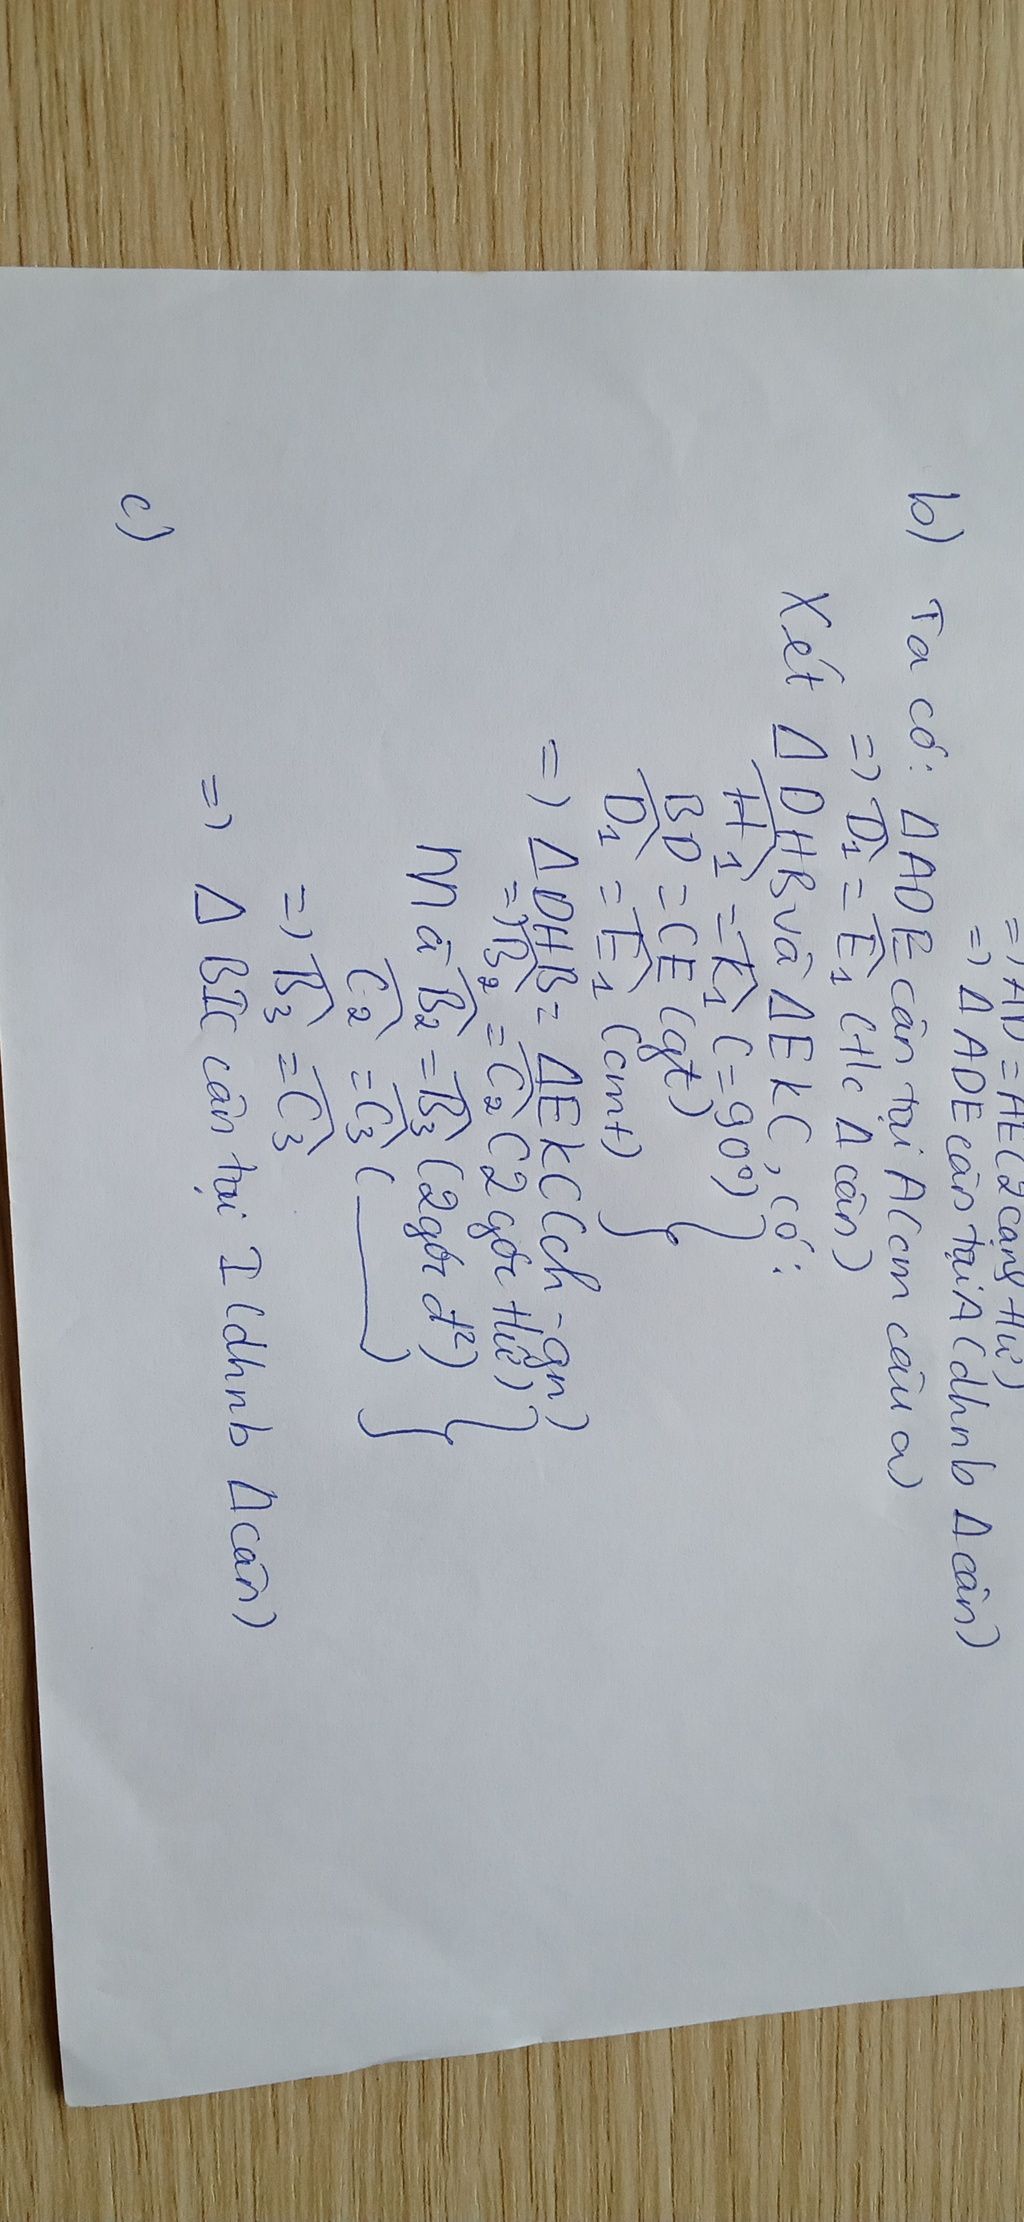 => AD = AE (2 cạnh tứ)
=> Δ ADE cân tại A (dhnb Δ cân)
b) Ta có: Δ ADE cân tại A (cm câu a)
=> D̂1 = Ê1 (t/c Δ cân)
Xét Δ DHB và Δ EKC, có:
Ĥ1 = K̂1 (= 90°)
BD = CE (gt)
D̂1 = Ê1 (cmt)
=> Δ DHB = Δ EKC (ch - gn)
=> B̂2 = Ĉ2 (2 góc tứ)
Mà B̂2 = B̂3 (2 góc đ²)
Ĉ2 = Ĉ3 ( —— )
=> B̂3 = Ĉ3
=> Δ BIC cân tại I (dhnb Δ cân)
c)